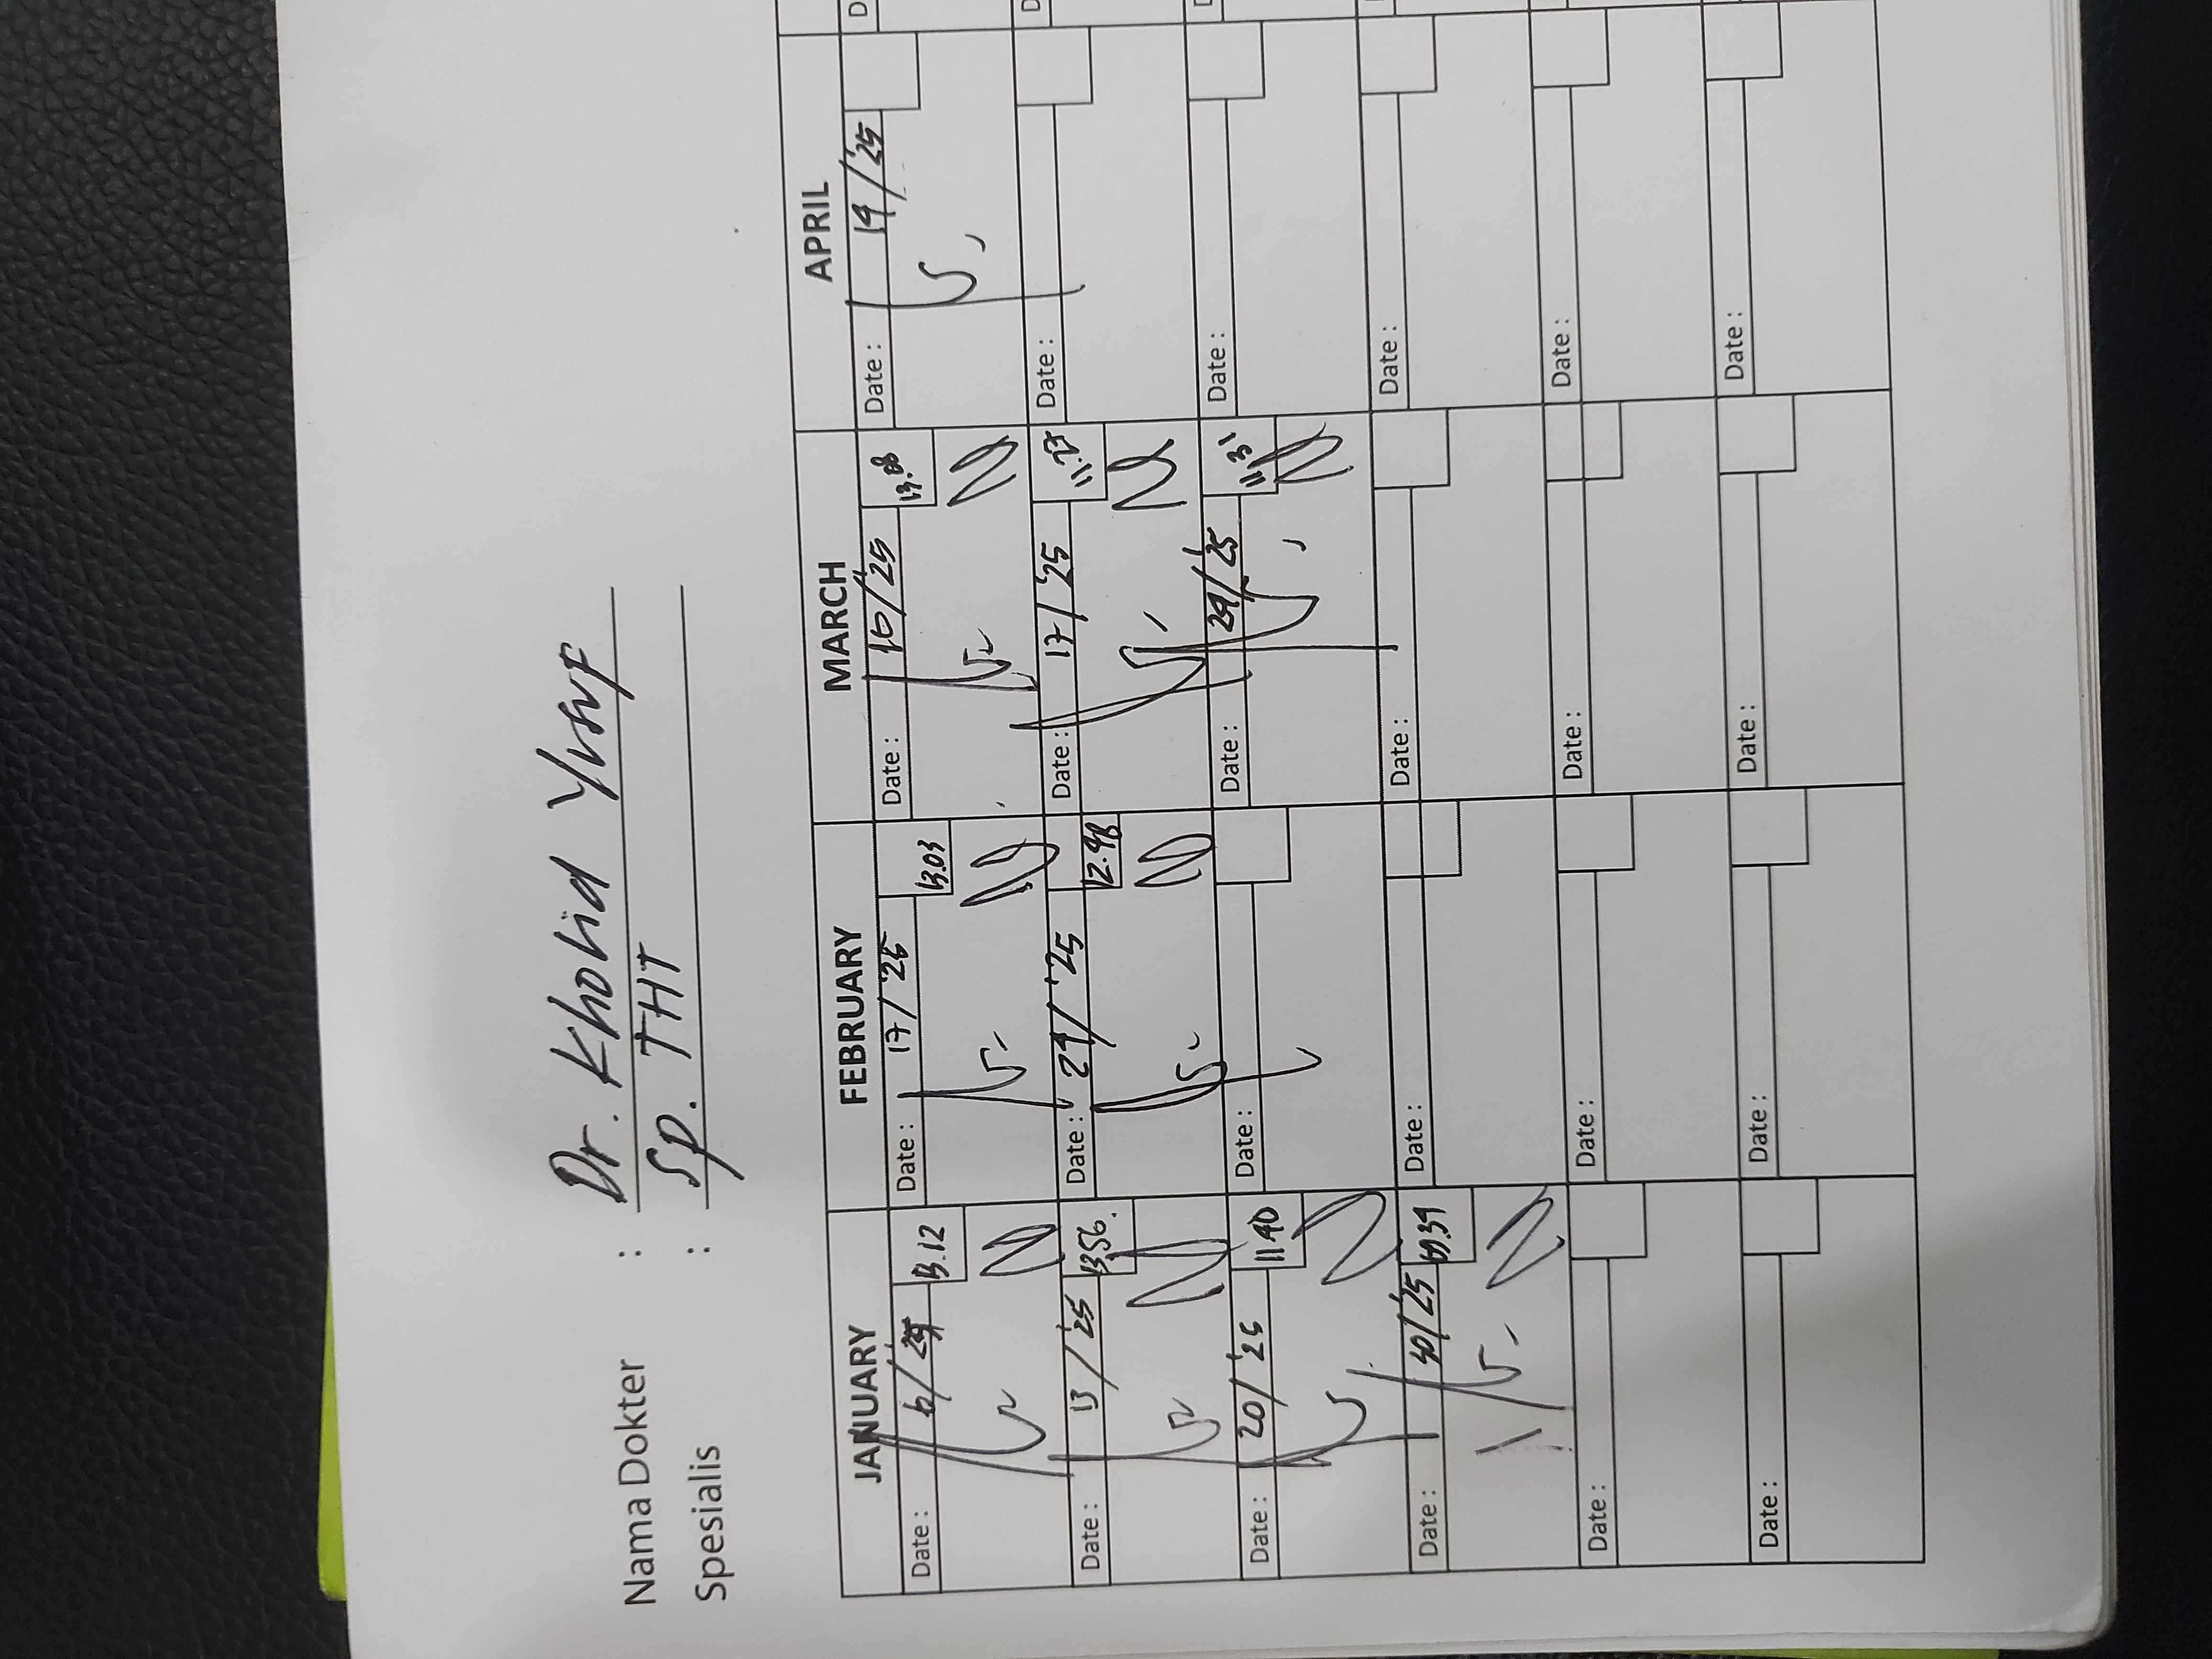 Nama Dokter : Dr. Kholid Yusuf
Spesialis : Sp. THT
JANUARY FEBRUARY MARCH APRIL
Date : 6/ 13.12 Date : 17/'25 13.03 Date : 10/'25 Date : 14/'25
Date : 13/'25 13.56. Date : 24/'25 12.48 Date : 17/'25 Date :
Date : 20/'25 11.40 Date : Date : 24/'25 11.31 Date :
Date : /'25 Date : Date : Date :
Date : Date : Date : Date :
Date : Date : Date : Date :